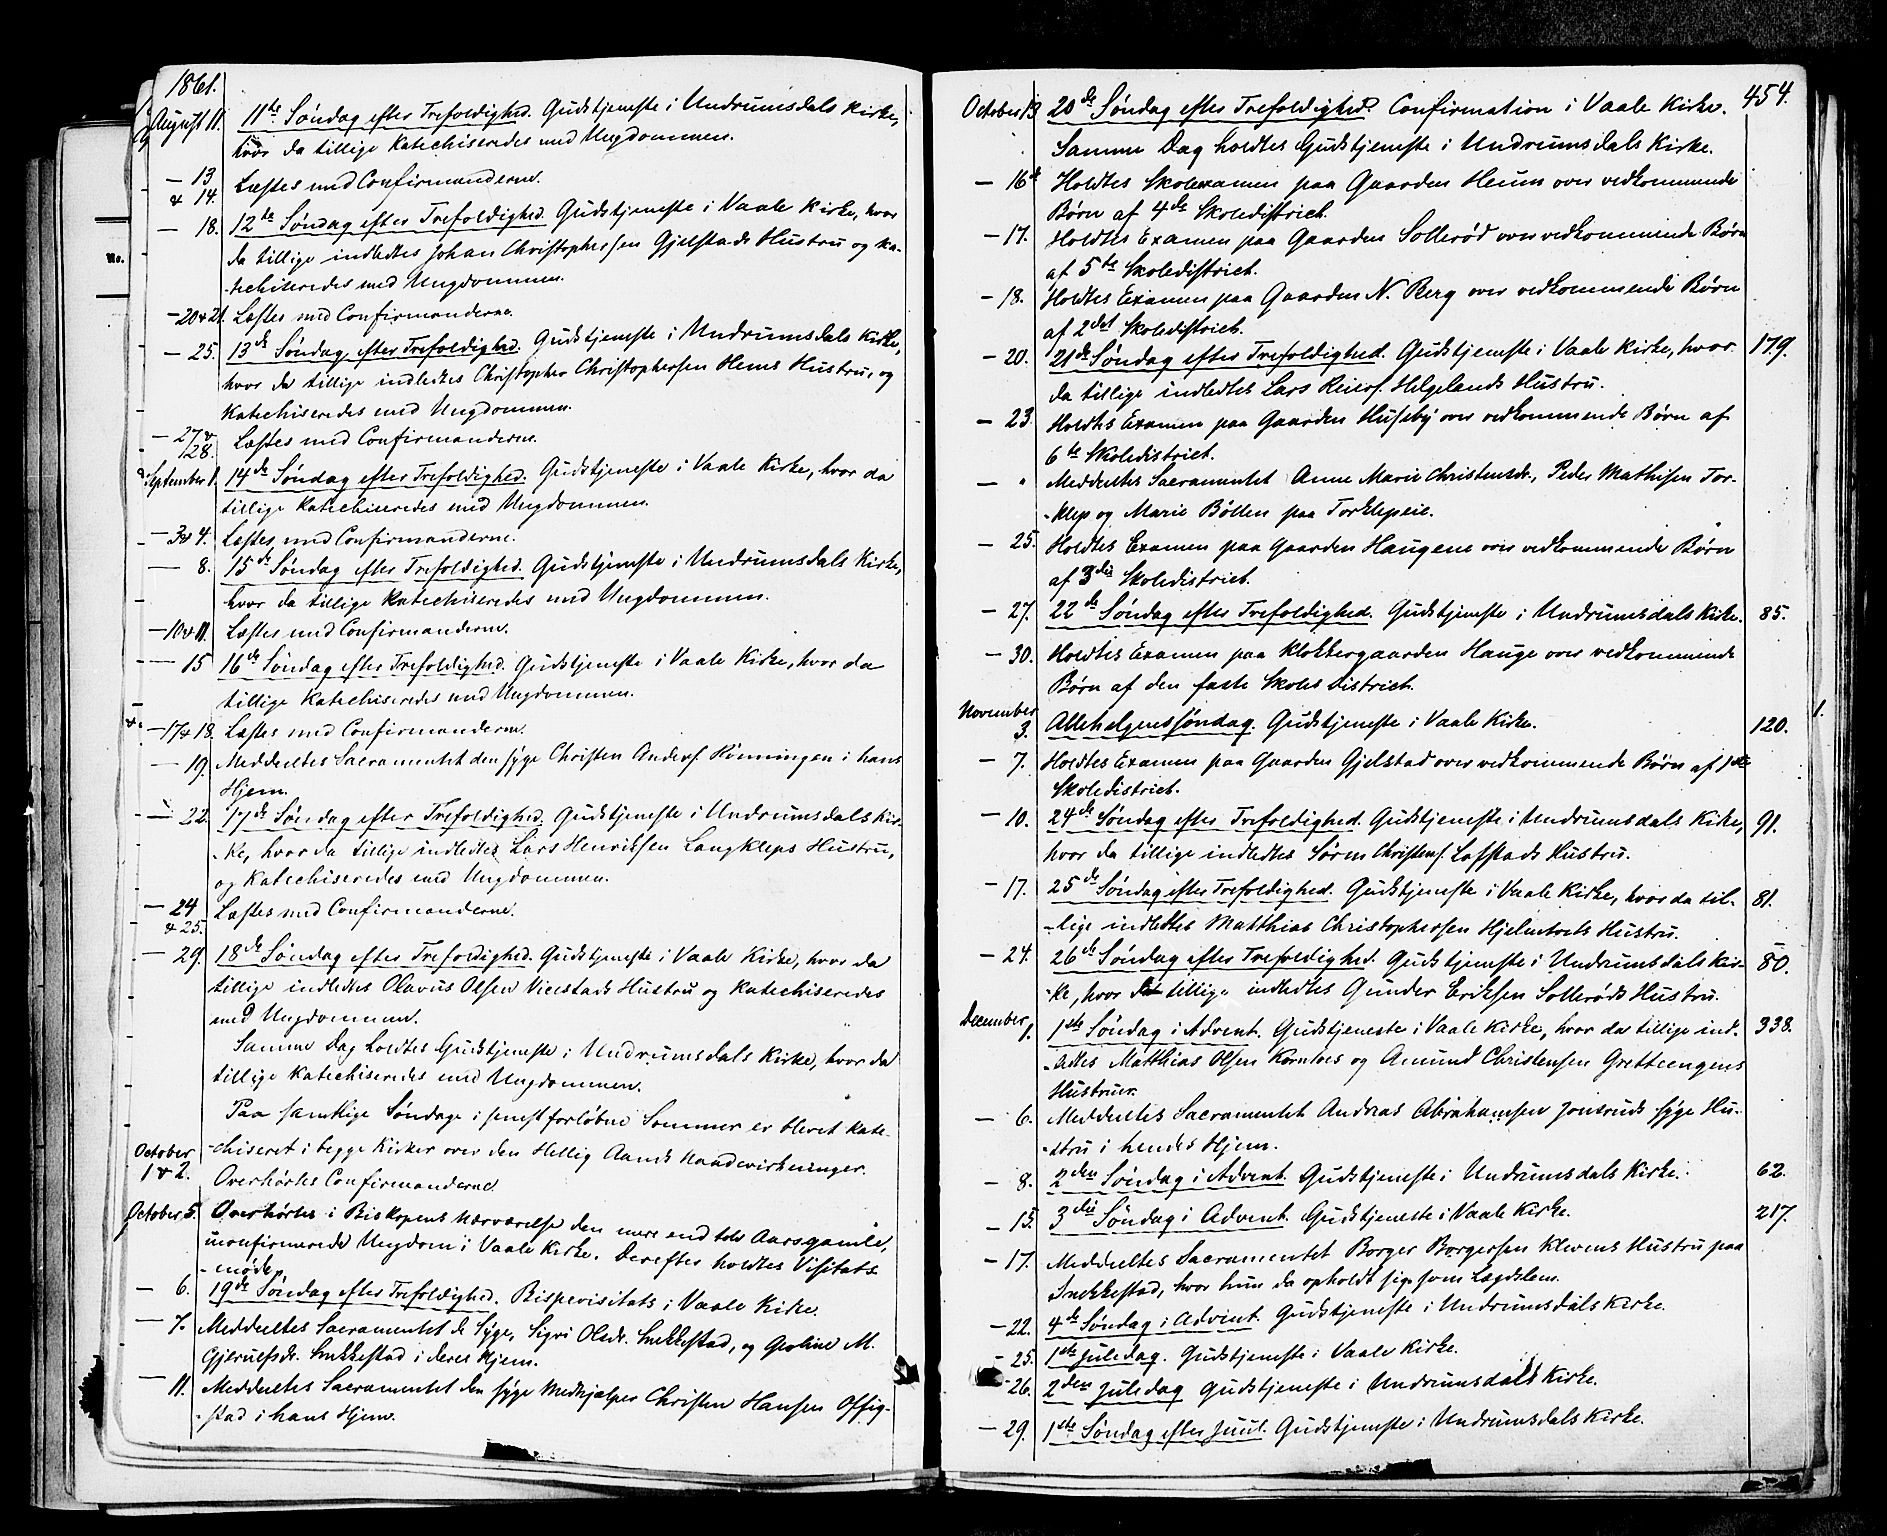 1861.
August 11. 11te Søndag efter Trefoldighed. Gudstjeneste i Undrumsdals Kirke,
hvor da tillige katechiseredes med Ungdommen.
— 13 & 14. Læstes med Confirmanderne.
— 18. 12te Søndag efter Trefoldighed. Gudstjeneste i Vaale Kirke, hvor
da tillige indledtes Johan Christophersen Gjelstads Hustru og ka-
-techiseredes med Ungdommen.
— 20 & 21. Læstes med Confirmanderne.
— 25. 13de Søndag efter Trefoldighed. Gudstjeneste i Undrumsdals Kirke,
hvor da tillige indledtes Christopher Christophersen Hems Hustru, og
katechiseredes med Ungdommen.
— 27 & 28. Læstes med Confirmanderne.
September 1. 14de Søndag efter Trefoldighed. Gudstjeneste i Vaale Kirke, hvor da
tillige katechiseredes med Ungdommen.
— 3 & 4. Læstes med Confirmanderne.
— 8. 15de Søndag efter Trefoldighed. Gudstjeneste i Undrumsdals Kirke,
hvor da tillige katechiseredes med Ungdommen.
— 10 & 11. Læstes med Confirmanderne.
— 15 16de Søndag efter Trefoldighed. Gudstjeneste i Vaale Kirke, hvor da
tillige katechiseredes med Ungdommen.
— 17 & 18. Læstes med Confirmanderne.
— 19. Meddeeltes Sacramentet den syge Christen Anders. Rønningen i hans
Hjem.
— 22. 17de Søndag efter Trefoldighed. Gudstjeneste i Undrumsdals Kir-
-ke, hvor da tillige indledtes Lars Henriksen Langkleps Hustru,
og katechiseredes med Ungdommen.
— 24 & 25. Læstes med Confirmanderne.
— 29. 18de Søndag efter Trefoldighed. Gudstjeneste i Vaale Kirke, hvor da
tillige indledtes Olavus Olsen Vivestads Hustru og katechiseredes
med Ungdommen.
Samme Dag holdtes Gudstjeneste i Undrumsdals Kirke, hvor da
tillige katechiseredes med Ungdommen.
Paa samtlige Søndage i senest forløbne Sommer er blevet kate-
-chiseret i begge Kirker over den Hellig Aands Naadevirkninger.
October 1 & 2. Overhørtes Confirmanderne.
October 5. Overhørtes i Biskopens Nærværelse den mere end tolv Aarsgamle,
uconfirmerede Ungdom i Vaale Kirke. Derefter holdtes Visitats-
-møde.
— 6. 19de Søndag efter Trefoldighed. Bispevisitats i Vaale Kirke.
— 7. Meddeeltes Sacramentet de Syge, Sigri Olsdr. Snekkestad, og Geoline M.
Gjerulfsdr. Snekkestad i deres Hjem.
— 11. Meddeeltes Sacramentet den syge Medhjælper Christen Hansen Offig-
-stad i hans Hjem.
454.
October 13 20de Søndag efter Trefoldighed. Confirmation i Vaale Kirke.
Samme Dag holdtes Gudstjeneste i Undrumsdals Kirke.
— 16de Holdtes Skolexamen paa Gaarden Heum over vedkommende
Børn af 4de Skoledistrict.
— 17. Holdtes Examen paa Gaarden Sollerød over vedkommende Børn
af 5te Skoledistrict.
— 18. Holdtes Examen paa Gaarden N. Berg over vedkommende Børn
af 2det Skoledistrict.
— 20. 21de Søndag efter Trefoldighed. Gudstjeneste i Vaale Kirke, hvor 179.
da tillige indledtes Lars Reiers. Helgelands Hustru.
— 23. Holdtes Examen paa Gaarden Huseby over vedkommende Børn af
6te Skoledistrict.
— " Meddeeltes Sacramentet Anne Marie Christensdr., Peder Mathisen Tor-
-klep og Marie Bøllen paa Torklepeie.
— 25. Holdtes Examen paa Gaarden Haugene over vedkommende Børn
af 3die Skoledistrict.
— 27. 22de Søndag efter Trefoldighed. Gudstjeneste i Undrumsdals Kirke. 85.
— 30. Holdtes Examen paa Klokkergaarden Hauge over vedkommende
Børn af den faste Skoles District.
November 3. Allehelgenssøndag. Gudstjeneste i Vaale Kirke. 120. 1.
— 7. Holdtes Examen paa Gaarden Gjelstad over vedkommende Børn af 1ste
Skoledistrict.
— 10. 24de Søndag efter Trefoldighed. Gudstjeneste i Undrumsdals Kirke, 91.
hvor da tillige indledtes Søren Christens. Lofstads Hustru.
— 17. 25de Søndag efter Trefoldighed. Gudstjeneste i Vaale Kirke, hvor da til- 81.
-lige indledtes Matthias Christophersen Hjelmtvets Hustru.
— 24. 26de Søndag efter Trefoldighed. Gudstjeneste i Undrumsdals Kir- 80.
-ke, hvor da tillige indledtes Gunder Eriksen Sollerøds Hustru.
December 1. 1ste Søndag i Advent. Gudstjeneste i Vaale Kirke, hvor da tillige ind- 338.
-ledtes Matthias Olsen Korntves og Amund Christensen Gretteengens
Hustruer.
— 6. Meddeeltes Sacramentet Andreas Abrahamsen Jonsruds syge Hu-
-stru i hendes Hjem.
— 8. 2den Søndag i Advent. Gudstjeneste i Undrumsdals Kirke. 62.
— 15. 3die Søndag i Advent. Gudstjeneste i Vaale Kirke. 217.
— 17. Meddeeltes Sacramentet Borger Borgersen Klevens Hustru paa
Snekkestad, hvor hun da opholdt sig som Lægdslem.
— 22. 4de Søndag i Advent. Gudstjeneste i Undrumsdals Kirke.
— 25. 1ste Juledag. Gudstjeneste i Vaale Kirke.
— 26. 2den Juledag Gudstjeneste i Undrumsdals Kirke.
— 29. 1ste Søndag efter Juul. Gudstjeneste i Undrumsdals Kirke.